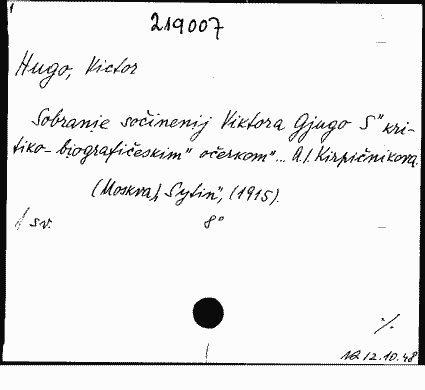 219007
Hugo, Victor
Sobranie sočinenij Viktora Gjugo S" kri-
tiko-biografičeskim" očerkom"... A.I. Kirpičnikova.
(Moskva), Sytin", (1915).
sv. 8°
%.
12.10.48